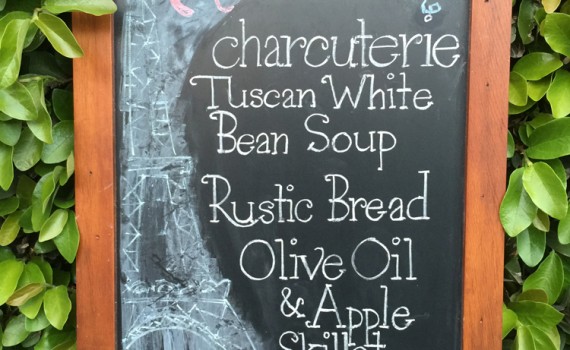 charcuterie
Tuscan White
Bean Soup
Rustic Bread
Olive Oil
& Apple
Skillet